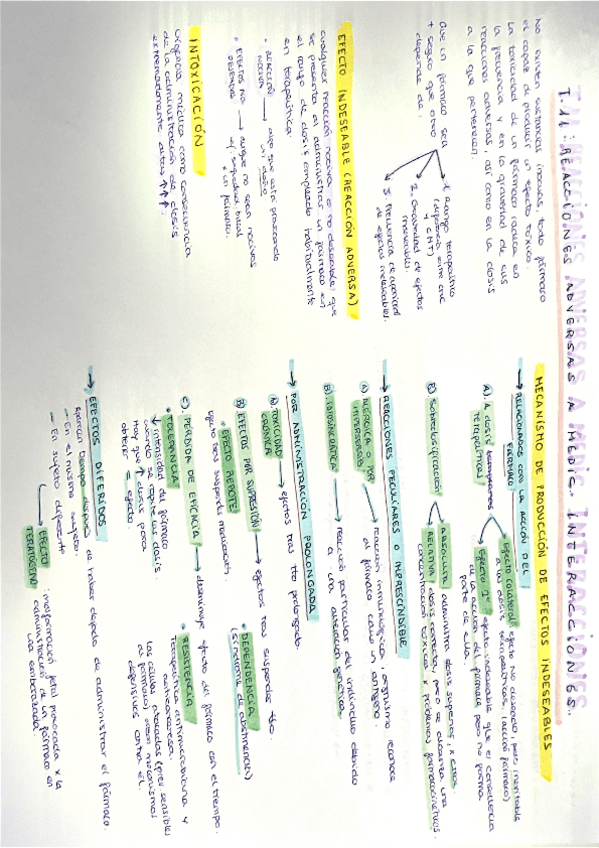 T.11: REACCIONES ADVERSAS A MEDIC. INTERACCIONES.
No existen sustancias inocuas, todo fármaco
es capaz de producir un efecto tóxico.
La toxicidad de un fármaco radica en
la frecuencia y en la gravedad de sus
reacciones adversas, así como en la dosis
a la que pertenecen.
Que un fármaco sea
+ seguro que otro
depende de:
1. Rango terapéutico
(diferencia entre CME
y CMT)
2. Gravedad de efectos
indeseables
3. Frecuencia de aparición
de efectos indeseables.
EFECTO INDESEABLE (REACCIÓN ADVERSA)
cualquier reacción nociva o no deseable que
se presenta al administrar un fármaco en
el rango de dosis empleado habitualmente
en terapéutica.
• REACCIÓN NOCIVA → algo que está provocando
un daño
• EFECTOS NO DESEADOS → aunque no sean nocivos
x un fármaco.
INTOXICACIÓN
urgencia médica como consecuencia
de la administración de dosis
extremadamente altas ↑↑↑.
MECANISMO DE PRODUCCIÓN DE EFECTOS INDESEABLES
→ RELACIONADOS CON LA ACCIÓN DEL
FÁRMACO
A). A dosis
terapéuticas
Efecto colateral: efecto no deseado, pero inevitable
a las dosis terapéuticas. (acción fármaco)
Efecto 2º: efecto indeseable que es consecuencia
de acción del fármaco pero no forma
parte de ella
B). Sobredosificación
ABSOLUTA: administra dosis superiores, x error.
RELATIVA: dosis correcta, pero se alcanza una
concentración tóxica x problemas farmacocinéticos.
→ REACCIONES PECULIARES O IMPRESCINDIBLE
A) ALÉRGICA O POR
HIPERSENSIB. → reacción inmunológica, organismo reconoce
al fármaco como un antígeno.
B). IDIOSINCRÁTICA → reacción particular del individuo debido
a una alteración genética.
→ POR ADMINISTRACIÓN PROLONGADA
A) TOXICIDAD
CRÓNICA → efectos tras tto prolongado.
B) EFECTOS POR SUPRESIÓN → efectos tras suspender tto.
• EFECTO REBOTE:
efecto tras suspender medicación.
• DEPENDENCIA
(síndrome de abstinencia)
C). PÉRDIDA DE EFICACIA → disminuye efecto del fármaco con el tiempo.
• TOLERANCIA
↓ intensidad del fármaco
cuando se repite la dosis
Hay que ↑ dosis para
obtener = efecto
• RESISTENCIA
Terapéutica antibacteriana y
antineoplásica.
Las células atacadas (prev. sensibles
al fármaco) crean mecanismos
defensivos contra él.
→ EFECTOS DIFERIDOS
Aparecen tiempo después de haber dejado de administrar el fármaco.
— En el mismo sujeto.
— En sujeto diferente
→ EFECTO
TERATÓGENO: malformación fetal provocada x la
administración de un fármaco en
una embarazada.